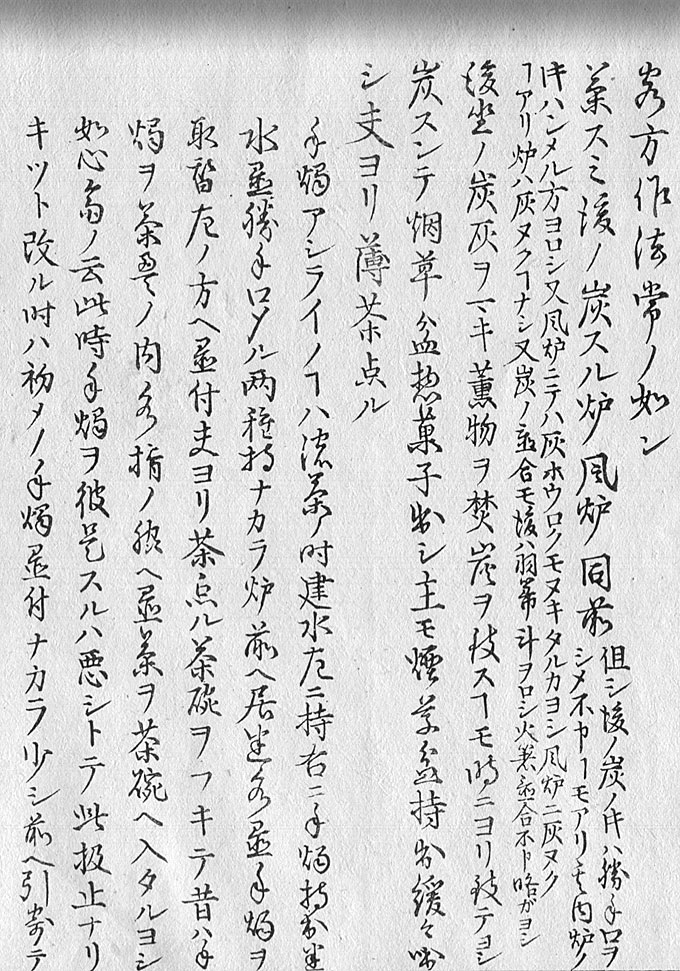 客方作法常ノ如シ
茶スミ後ノ炭スル炉ノ風炉同前
但シ後ノ炭ノ𪜈ハ勝手口ヲ
シメ不申ヿモアリ其内炉ノ
𪜈ハシメル方ヨロシ又風炉ニテハ灰ホウロクモヌキタルカヨシ風炉ニ灰ヌク
ヿアリ炉ハ灰ヌクヿナシ又炭ノ置合モ後ハ羽箒斗ヲロシ火箸置合不申略ガヨシ
後坐ノ炭灰ヲマキ薫物ヲ焚炭ヲ残スヿモ時ニヨリ残テヨシ
炭スンテ烟草盆惣菓子出シ主モ煙草盆持出緩々咄
シ夫ヨリ薄茶点ル
手燭アシライノヿハ濃茶ノ時建水左ニ持右ニ手燭持出坐
水置勝手口〆ル両種持ナカラ炉前ヘ居建水置手燭ヲ
取替左ノ方ヘ置付夫ヨリ茶点ル茶碗ヲフキテ昔ハ手
燭ヲ茶 ノ内 ノ脇ヘ置茶ヲ茶碗ヘ入タルヨシ
如心斎ノ云此時手燭ヲ彼是スルハ悪シトテ此扱止ナリ
キツト改ル時ハ初メノ手燭置付ナカラ少シ前ヘ引寄テ